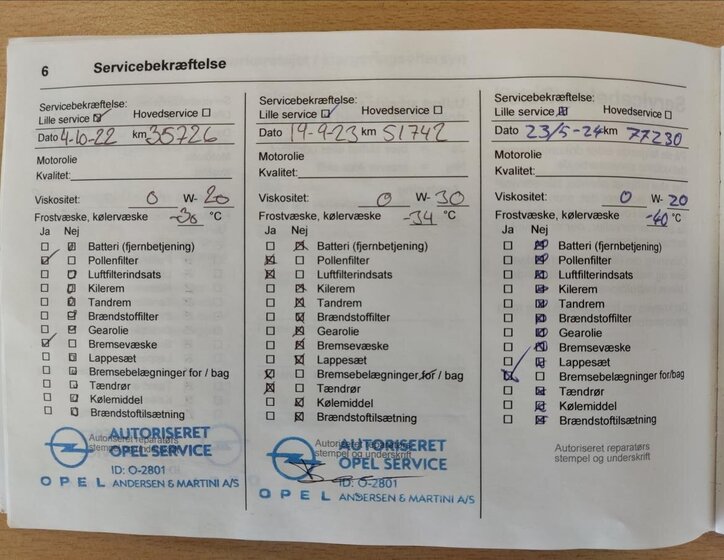 6 Servicebekræftelse
Servicebekræftelse:
Lille service Hovedservice
Dato 4-10-22 km 35726
Motorolie
Kvalitet:
Viskositet: 0 W- 20
Frostvæske, kølervæske -30 °C
Ja Nej
Batteri (fjernbetjening)
Pollenfilter
Luftfilterindsats
Kilerem
Tandrem
Brændstoffilter
Gearolie
Bremsevæske
Lappesæt
Bremsebelægninger for / bag
Tændrør
Kølemiddel
Brændstoftilsætning
Autoriseret reparatørs
stempel og underskrift
AUTORISERET
OPEL SERVICE
ID: O-2801
OPEL ANDERSEN & MARTINI A/S
Servicebekræftelse:
Lille service Hovedservice
Dato 19-9-23 km 51742
Motorolie
Kvalitet:
Viskositet: 0 W- 30
Frostvæske, kølervæske -34 °C
Ja Nej
Batteri (fjernbetjening)
Pollenfilter
Luftfilterindsats
Kilerem
Tandrem
Brændstoffilter
Gearolie
Bremsevæske
Lappesæt
Bremsebelægninger for / bag
Tændrør
Kølemiddel
Brændstoftilsætning
Autoriseret reparatørs
stempel og underskrift
AUTORISERET
OPEL SERVICE
ID: O-2801
OPEL ANDERSEN & MARTINI A/S
Servicebekræftelse:
Lille service Hovedservice
Dato 23/5-24 km 77230
Motorolie
Kvalitet:
Viskositet: 0 W- 20
Frostvæske, kølervæske -40 °C
Ja Nej
Batteri (fjernbetjening)
Pollenfilter
Luftfilterindsats
Kilerem
Tandrem
Brændstoffilter
Gearolie
Bremsevæske
Lappesæt
Bremsebelægninger for/bag
Tændrør
Kølemiddel
Brændstoftilsætning
Autoriseret reparatørs
stempel og underskrift